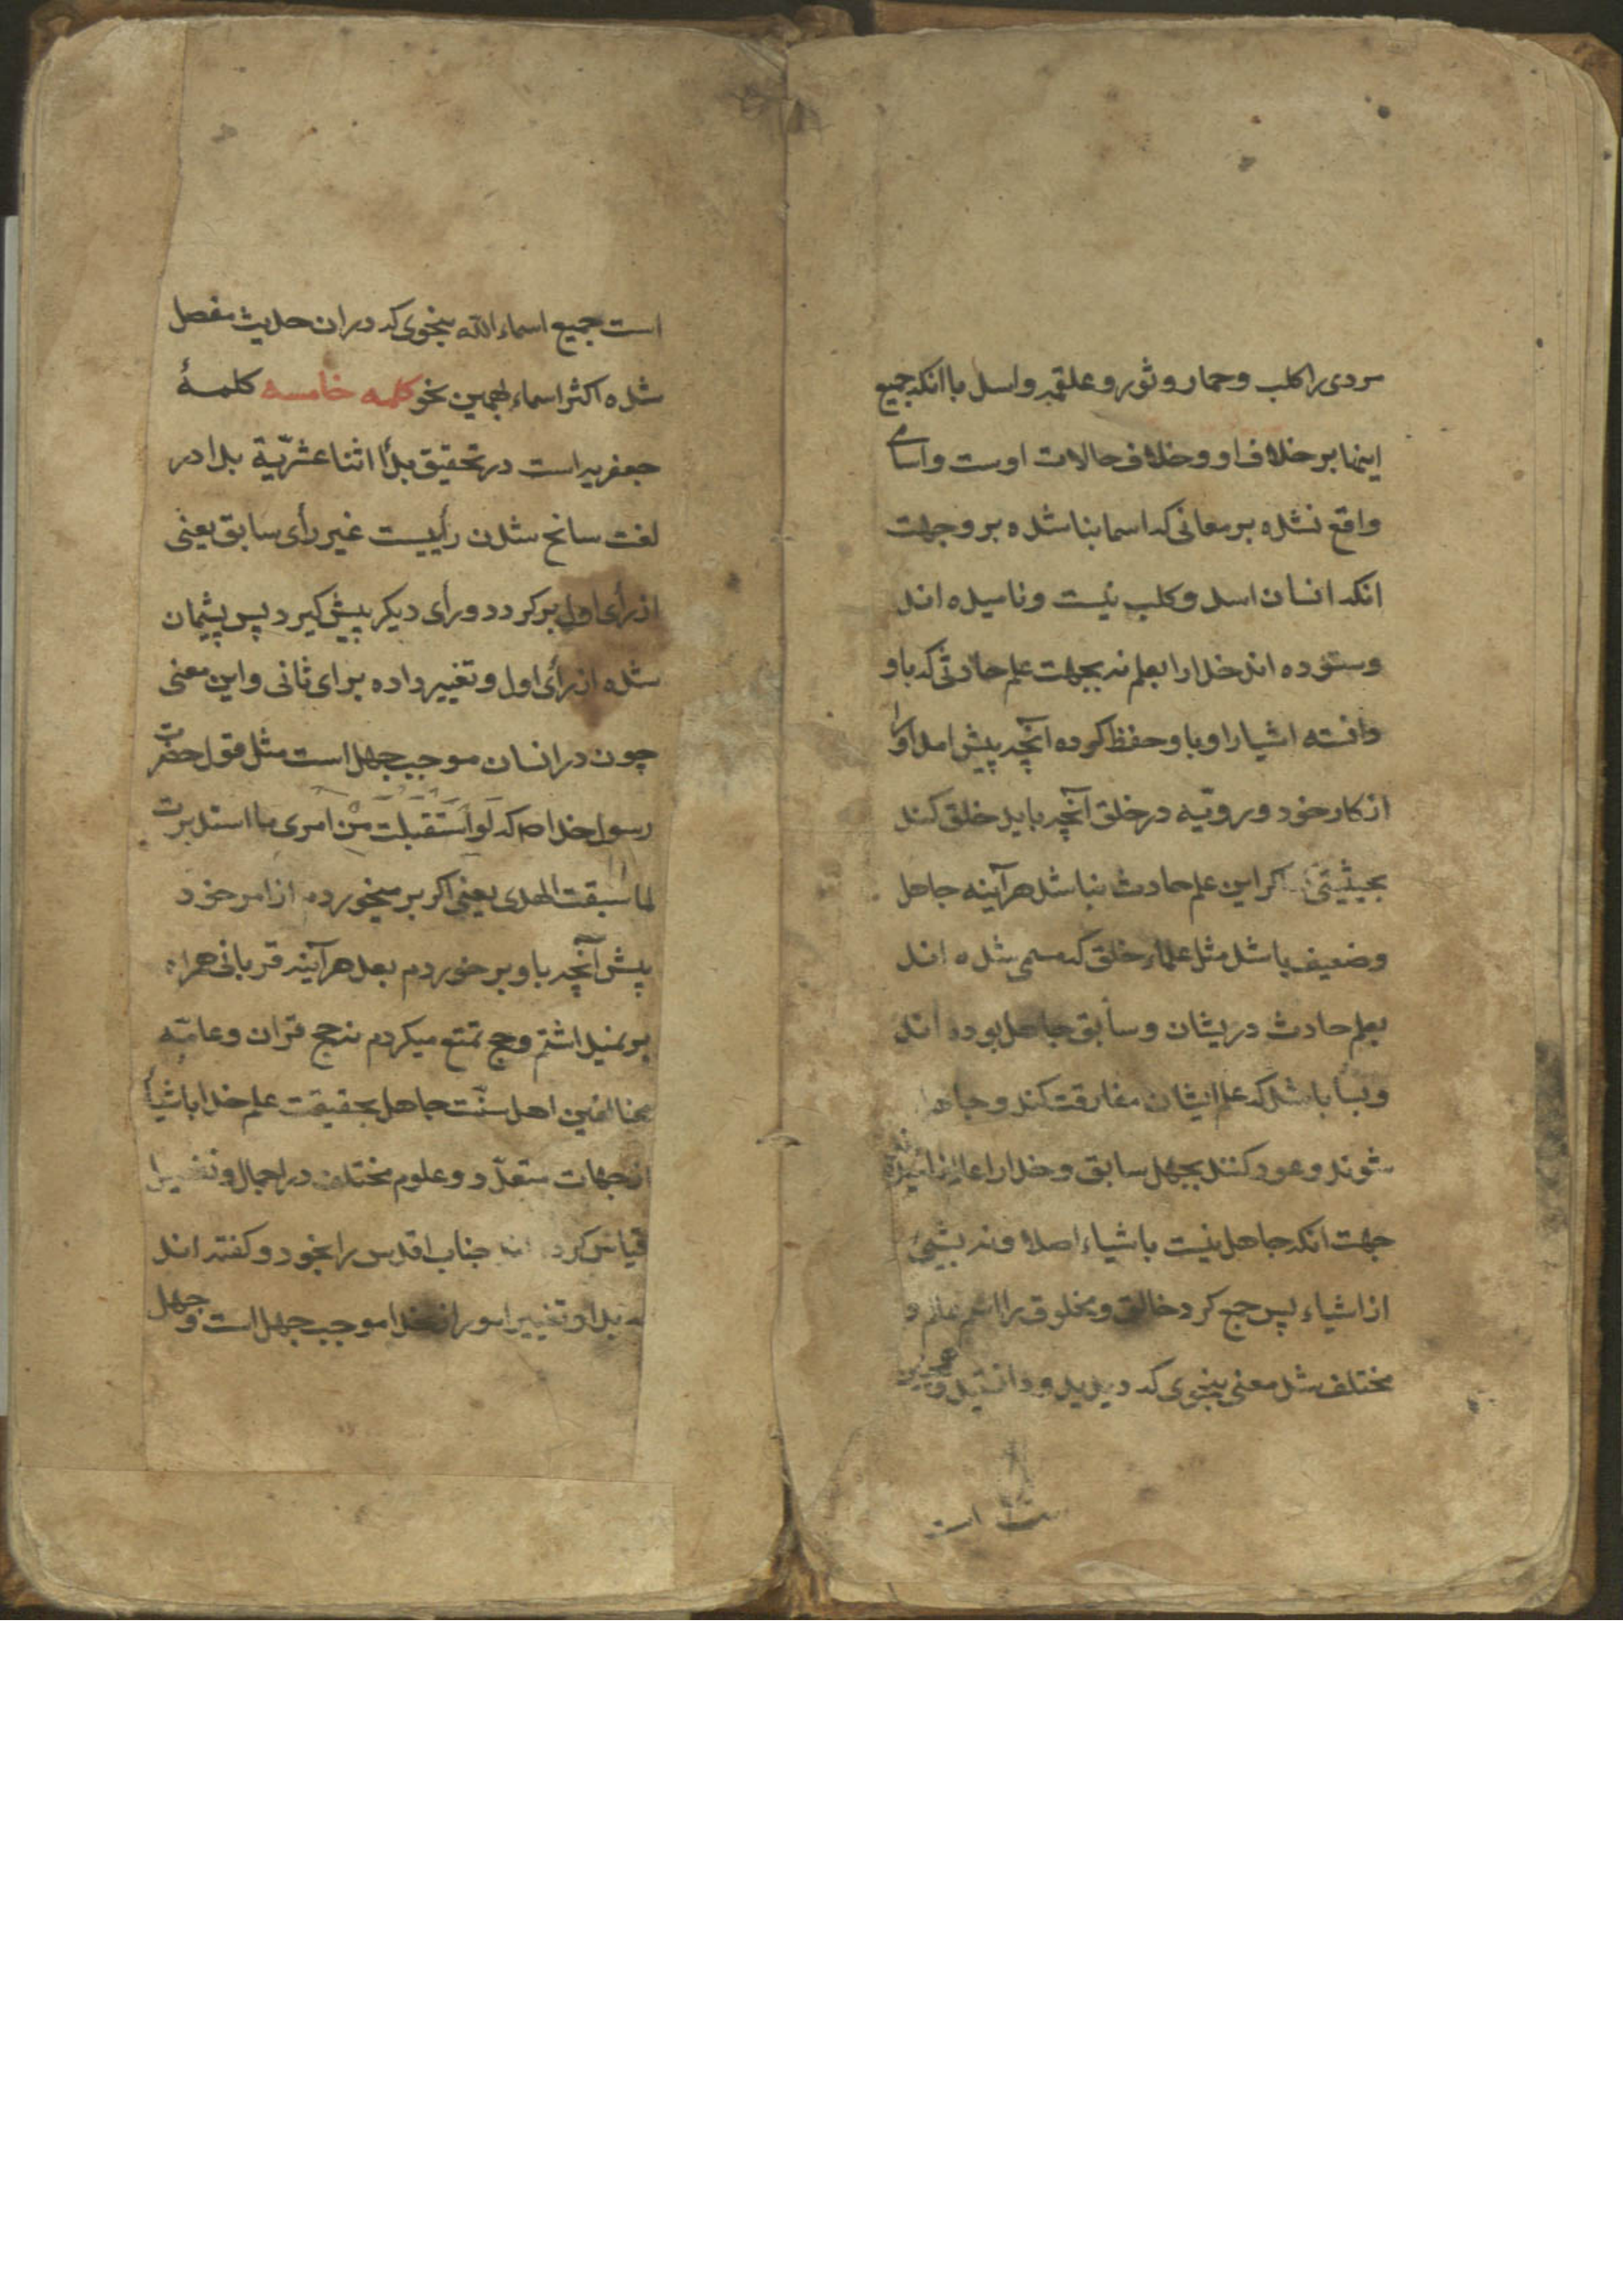 مردی را کلب و حمار و ثور و علقمه و اسد با انکه جمیع
اینها بر خلاف او و خلاف حالات اوست و اسامی
واقع نشده بر معانی که اسما بنا شده بر و جهت
انکه انسان اسد و کلب نیست و نامیده اند
و ستوده اند خدا را بعلم نه بجهت علم حادثی که باو
دانسته اشیا را و باو حفظ کرده آنچه پیش امد او را
از کار خود و رویّه در خلق آنچه باید خلق کند
بحیثیتی اکر این علم حادث نباشد هرآینه جاهل
و ضعیف باشد مثل علماء خلق که مسمی شده اند
بعلم حادث دریشان و سابق جاهل بوده اند
و بسا باشد که علم ایشان مفارقت کند و جاهل
شوند و عود کنند بجهل سابق و خدا را عالم نامیدند
جهت انکه جاهل نیست باشیاء اصلا و نه بشیئ
از اشیاء پس جمع کرد خالق و مخلوق را اسم عالم و
مختلف شد معنی بنحوی که دیدید و دانستید و همچنین
است
است جمیع اسماء الله بنحوی که در ان حدیث مفصل
شده اکثر اسماء بهمین نحو کلمه خامسه کلمۀ
جعفریه است در تحقیق بدأ اثنا عشریّة بدا در
لغت سانح شدن رأییست غیر رأی سابق یعنی
از رأی اول برکردد و رأی دیکر پیش کیرد پس پشیمان
شده از رأی اول و تغییر داده برای ثانی و این معنی
چون در انسان موجب جهل است مثل قول حضرت
رسول خدا ص که لَو اَسْتَقبلت مِن امری ما استدبرت
لما سبقت الهدی یعنی اکر بر میخوردم از امر خود
پیش آنچه باو بر خوردم بعد هرآینه قربانی همراه
بر نمیداشتم و حج تمتع میکردم نه حج قران و عامّه
مخالفین اهل سنّت جاهل بحقیقت علم خدا باشیأ
از جهات متعدّد و علوم مختلف در اجمال و تفصیل
قیاس کرده اند جناب اقدس را بخود و کفته اند
که بدا و تغییر امور از خدا موجب جهل است و جهل